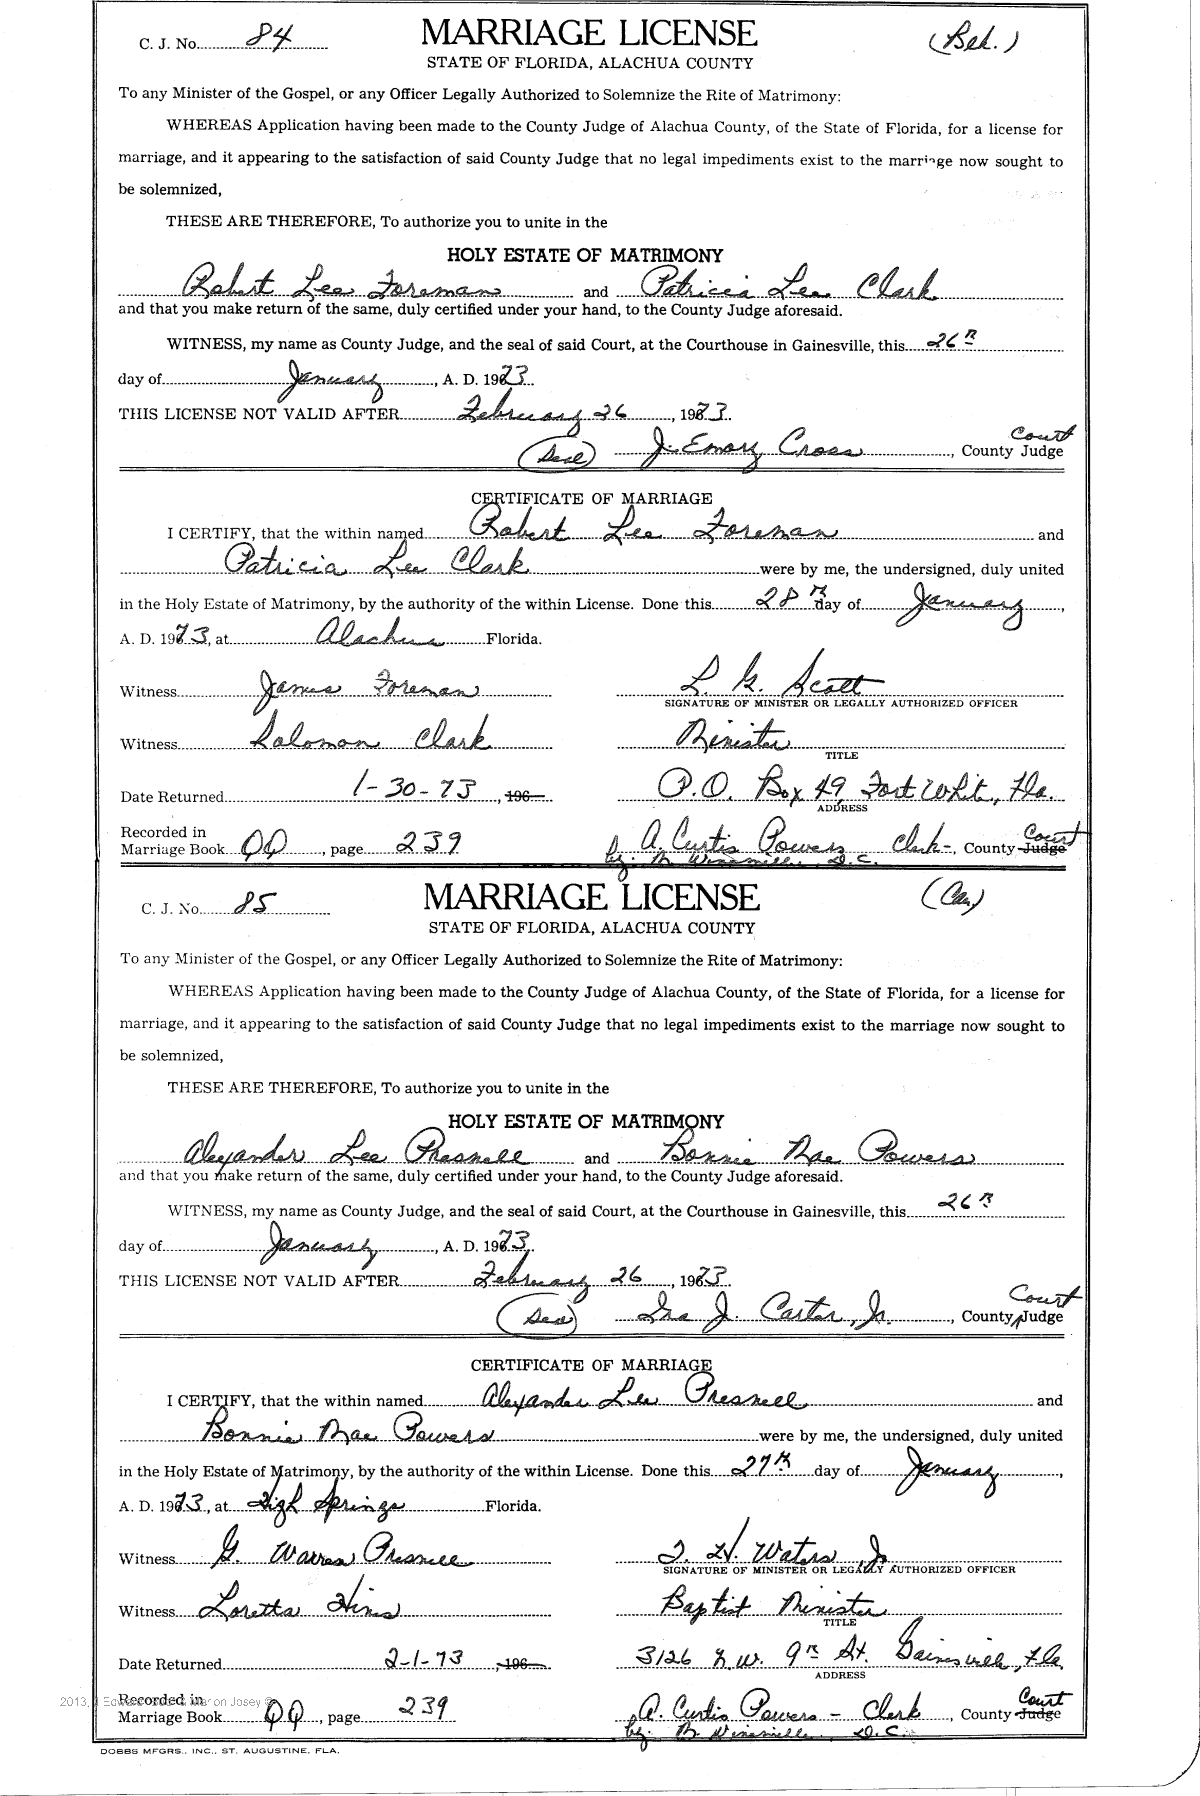 C. J. No. 84 MARRIAGE LICENSE (Bek.)
STATE OF FLORIDA, ALACHUA COUNTY
To any Minister of the Gospel, or any Officer Legally Authorized to Solemnize the Rite of Matrimony:
WHEREAS Application having been made to the County Judge of Alachua County, of the State of Florida, for a license for
marriage, and it appearing to the satisfaction of said County Judge that no legal impediments exist to the marriage now sought to
be solemnized,
THESE ARE THEREFORE, To authorize you to unite in the
HOLY ESTATE OF MATRIMONY
Robert Lee Foreman and Patricia Lee Clark
and that you make return of the same, duly certified under your hand, to the County Judge aforesaid.
WITNESS, my name as County Judge, and the seal of said Court, at the Courthouse in Gainesville, this 26th
day of January, A. D. 1973.
THIS LICENSE NOT VALID AFTER February 26, 1973.
(Seal) J. Emory Cross, County Court Judge
CERTIFICATE OF MARRIAGE
I CERTIFY, that the within named Robert Lee Foreman and
Patricia Lee Clark were by me, the undersigned, duly united
in the Holy Estate of Matrimony, by the authority of the within License. Done this 28th day of January,
A. D. 1973, at Alachua Florida.
Witness James Foreman L. G. Scott
SIGNATURE OF MINISTER OR LEGALLY AUTHORIZED OFFICER
Witness Solomon Clark Minister
TITLE
Date Returned 1-30-73, 196 P.O. Box 49, Fort White, Fla.
ADDRESS
Recorded in
Marriage Book QQ, page 239 A. Curtis Powers Clerk-, County Court Judge
by: D.C.
C. J. No. 85 MARRIAGE LICENSE
STATE OF FLORIDA, ALACHUA COUNTY
To any Minister of the Gospel, or any Officer Legally Authorized to Solemnize the Rite of Matrimony:
WHEREAS Application having been made to the County Judge of Alachua County, of the State of Florida, for a license for
marriage, and it appearing to the satisfaction of said County Judge that no legal impediments exist to the marriage now sought to
be solemnized,
THESE ARE THEREFORE, To authorize you to unite in the
HOLY ESTATE OF MATRIMONY
Alexander Lee Presnell and Bonnie Mae Powers
and that you make return of the same, duly certified under your hand, to the County Judge aforesaid.
WITNESS, my name as County Judge, and the seal of said Court, at the Courthouse in Gainesville, this 26th
day of January, A. D. 1973.
THIS LICENSE NOT VALID AFTER February 26, 1973.
(Seal) Ira J. Carter, Jr., County Court Judge
CERTIFICATE OF MARRIAGE
I CERTIFY, that the within named Alexander Lee Presnell and
Bonnie Mae Powers were by me, the undersigned, duly united
in the Holy Estate of Matrimony, by the authority of the within License. Done this 27th day of January,
A. D. 1973, at High Springs Florida.
Witness G. Warren Presnell T. W. Waters Jr
SIGNATURE OF MINISTER OR LEGALLY AUTHORIZED OFFICER
Witness Loretta Hines Baptist Minister
TITLE
Date Returned 2-1-73, 196 3126 N.W. 9th St. Gainesville, Fla.
ADDRESS
Recorded in
Marriage Book QQ, page 239 A. Curtis Powers - Clerk, County Court Judge
by: D.C.
DOBBS MFGRS., INC., ST. AUGUSTINE, FLA.